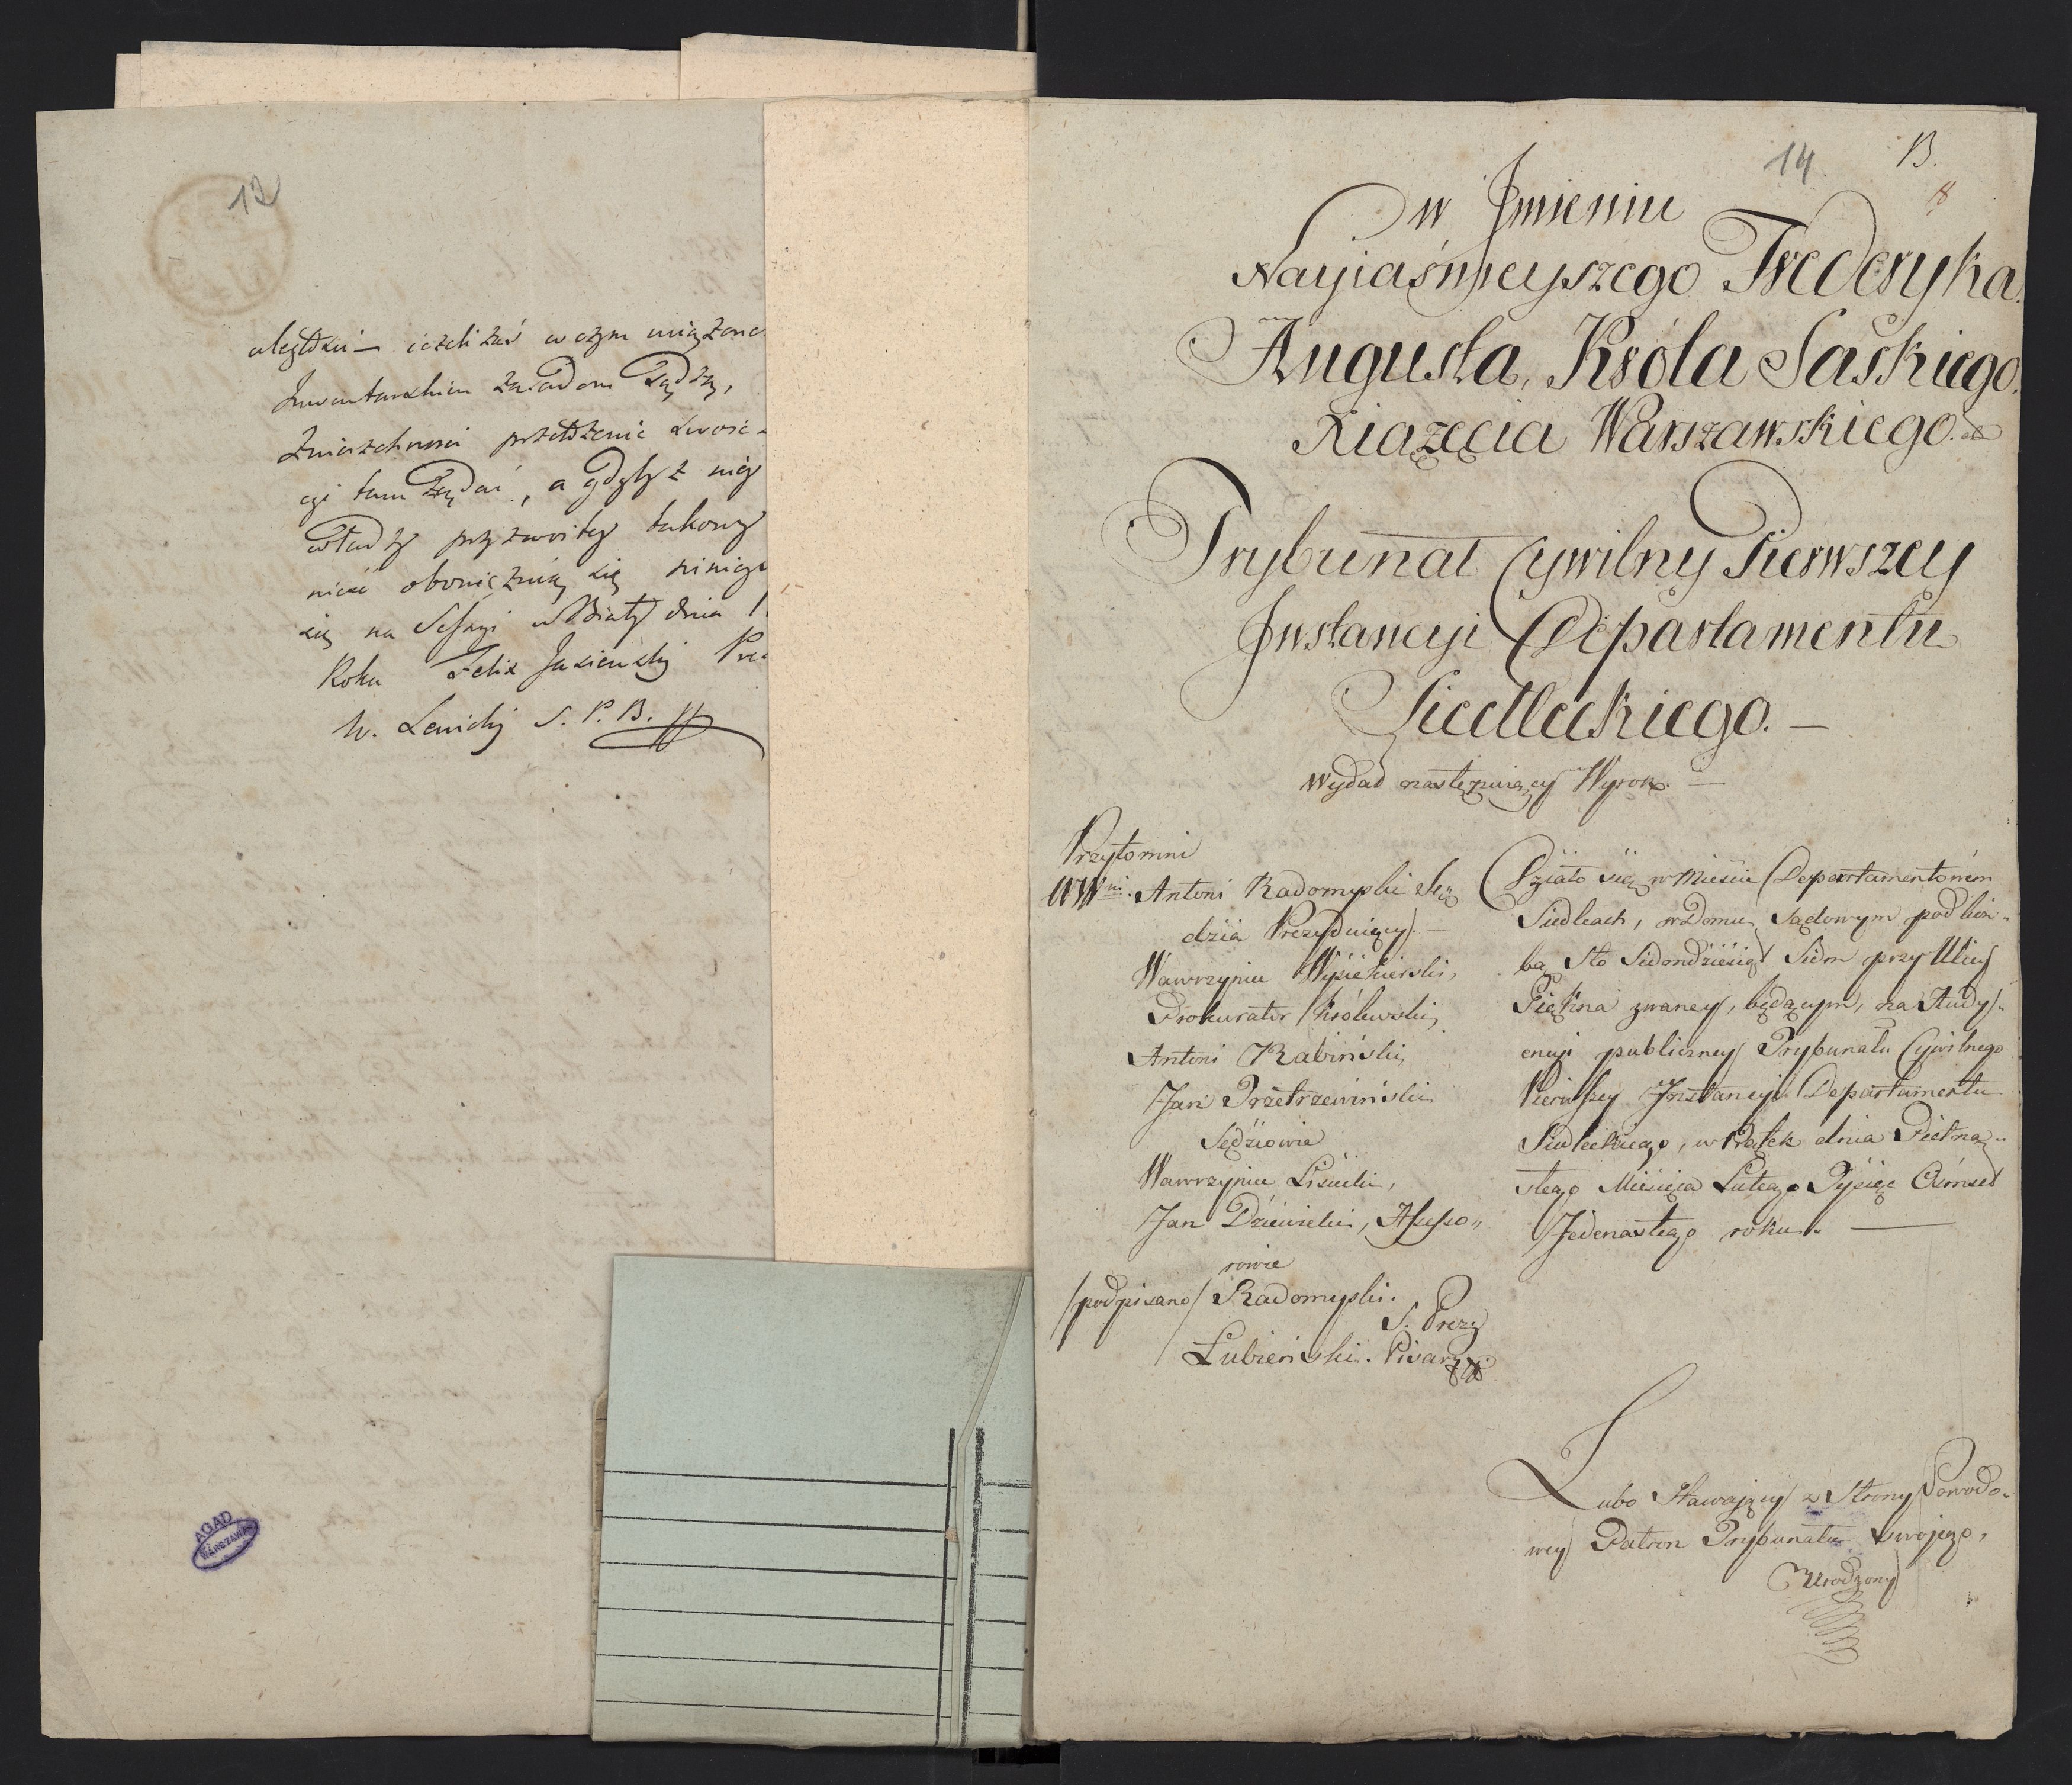 12
uległości – ieżeli zaś w czym uciążone
Inwentarskim zasadom sądzą,
Zwierzchności przełożenie uwość-
cyi tam żądać, a gdyby z niey
władzy przyzwoitey takowy
nieść obowiężuią się niniey
się na Sessyi w Biały dnia 1
Roku Felix Jasieński Pre
W. Lewicki S. P. B.
AGAD
WARSZAWA
14 13.
8
w Jmieniu
Nayiaśnieyszego Frederyka
Augusta, Króla Saskiego.
Xiążęcia Warszawskiego. &
Trybunał Cywilny Pierwszey
Jnstancyi Departamentu
Siedleckiego. —
Wydał następuiący Wyrok. —
Przytomni
WWni. Antoni Radomyski Sę-
dzia Prezyduiący. —
Wawrzyniec Wysiekierski,
Prokurator Królewski,
Antoni Rabiński,
Jan Przetrzewiński
Sędziowie
Wawrzyniec Lisiecki,
Jan Dziewicki, Assesso„
rowie
/podpisano/ Radomyski.
S. Prezy
Łubieński. Pisarz.
Działo się w Mieście Departamentowem
Siedlcach, w Domu Sądowym pod licz-
bą Sto Siedmdziesiąt Siedm przy Ulicy
Piękna zwaney, będącym, na Audy-
encyi publiczney Trybunału Cywilnego
Pierwszey Jnstancyi Departamentu
Siedleckiego, w Piątek dnia Piętna-
stego Miesiąca Lutego Tysiąc Ośmset
Jedenastego roku. —
Lubo Stawaiący z Strony Powodo-
wey Patron Trybunału swojego,
Urodzony